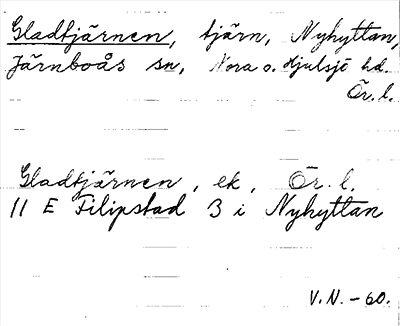 Gladtjärnen, tjärn, Nyhyttan,
Järnboås sn, Nora o. Hjulsjö hd.
Ör. l.
Gladtjärnen, ek, Ör. l.
11 E Filipstad 3 i Nyhyttan
V.N. - 60.